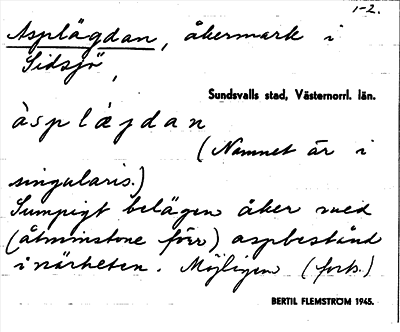 1-2.
Asplägdan, åkermark i
Sidsjö,
Sundsvalls stad, Västernorrl. län.
àsplǽgdan
(Namnet är i
singularis.)
Sumpigt belägen åker med
(åtminstone förr) aspbestånd
i närheten. Möjligen (forts.)
BERTIL FLEMSTRÖM 1945.